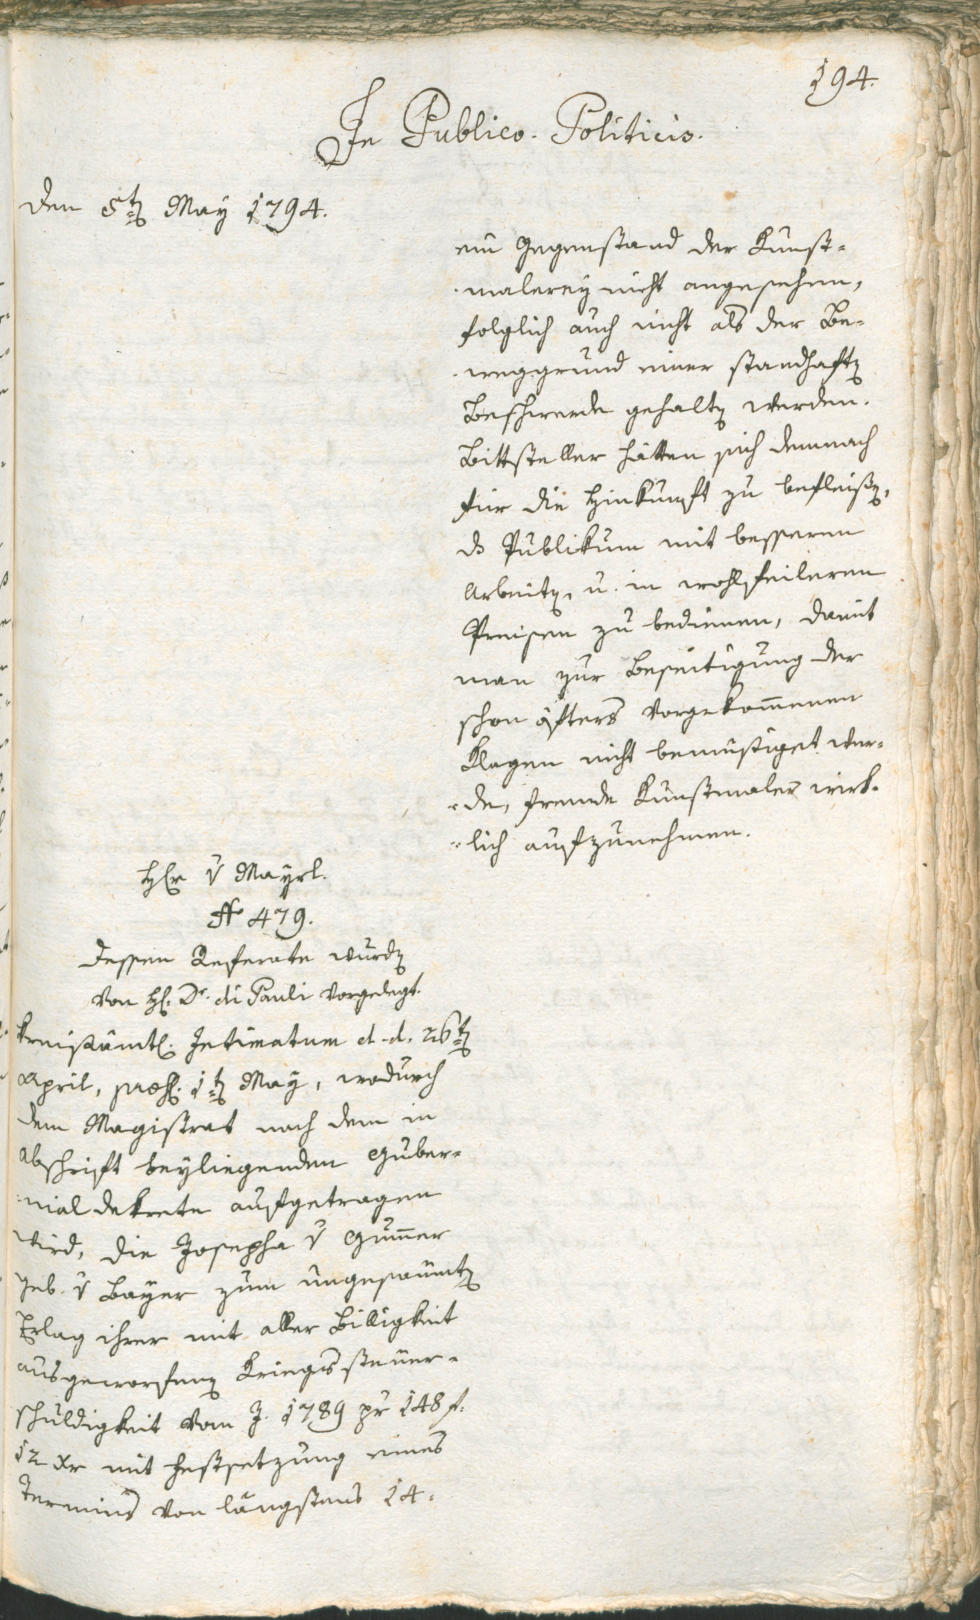 194.
In Publico-Politicis.
Den 5ten May 1794.
ein Gegenstand der Kunst-
malerey nicht angesehen,
folglich auch nicht als der Be-
weggrund einer standhaften
Beschwerde gehalten werden.
Bittsteller hätten sich demnach
für die Hinkunft zu befleißen,
ds Publikum mit besseren
Arbeiten, u. in wohlfeileren
Preisen zu bedienen, damit
man zur Beseitigung der
schon öfters vorgekommenen
Klagen nicht bemüßiget wer-
de, fremde Kunstmaler wirk-
lich aufzunehmen.
Hr v Mayrl.
N° 479.
Dessen Referate wurden
von H. Dr. di Pauli vorgelegt.
Kreisämtl. Intimatum d. d. 26ten
April, praes. 1ten May, wodurch
dem Magistrat nach dem in
Abschrift beyliegenden Guber-
nialdekrete aufgetragen
wird, die Josepha v Gumer
geb. v Bayer zum ungesaumten
Erlag ihrer mit aller Billigkeit
ausgeworfenen Kriegssteuer-
schuldigkeit vom J. 1789 pr 148 f.
12 xr mit Festsetzung eines
Termins von längstens 14.